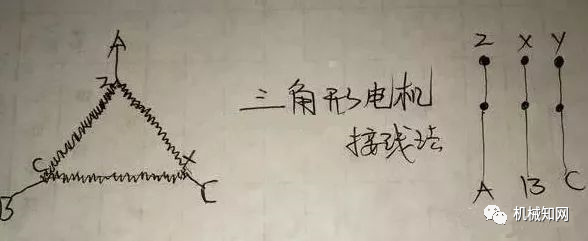 A
Z
C
X
B
C
三角形电机
接线法
Z X Y
A B C
机械知网